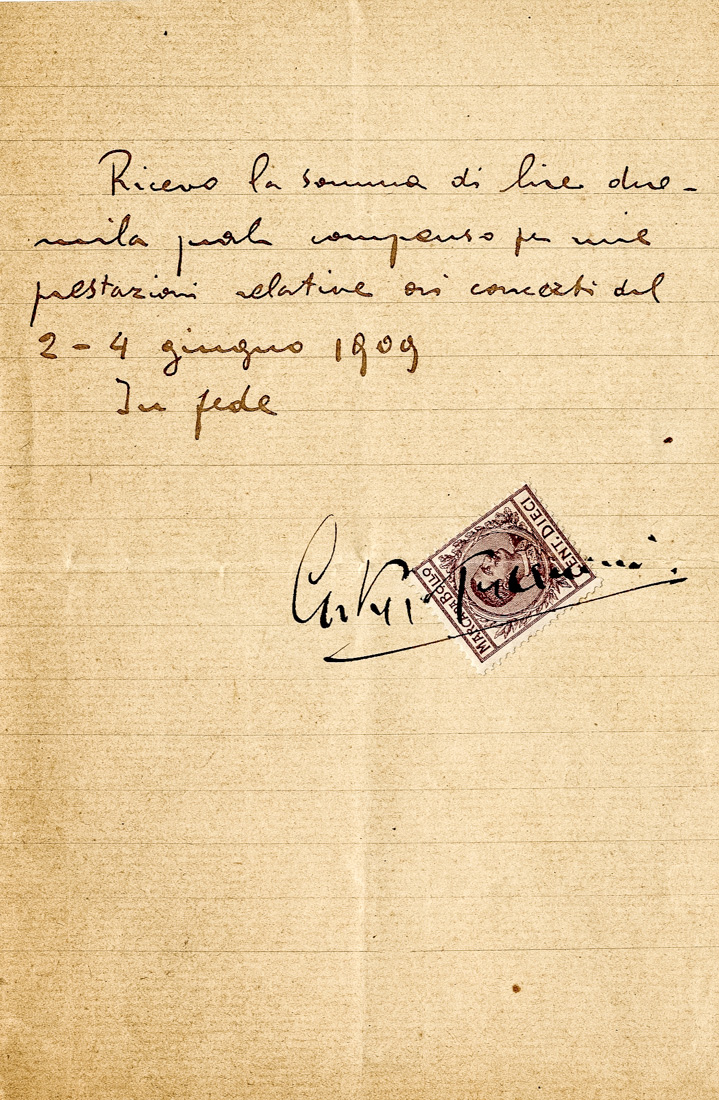 Ricevo la somma di lire due-
mila quale compenso per mie
prestazioni relative ai concerti del
2 - 4 giugno 1909
In fede
CENT. DIECI
MARCA DA BOLLO